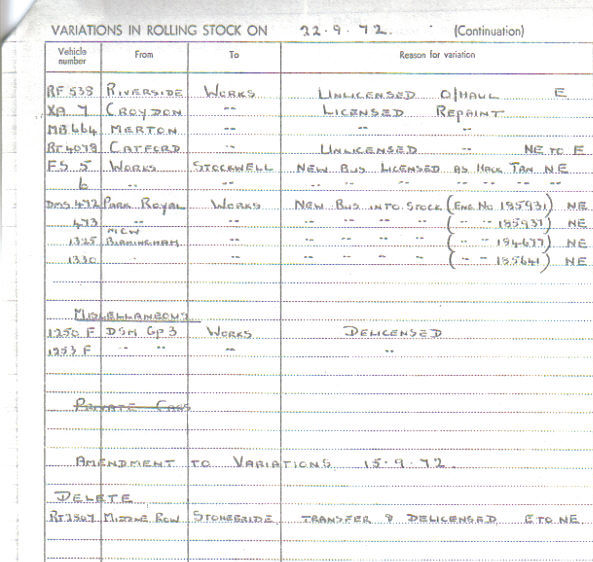 VARIATIONS IN ROLLING STOCK ON 22.9.72. (Continuation)
Vehicle number From To Reason for variation
RF 538 RIVERSIDE WORKS UNLICENSED O/HAUL E
XA 7 CROYDON -- LICENSED REPAINT
MB 664 MERTON -- -- --
RT 4078 CATFORD -- UNLICENSED -- NE TO E
FS 5 WORKS STOCKWELL NEW BUS LICENSED AS HACK TAN N.E
6 -- -- -- -- -- -- -- -- --
DMS 472 PARK ROYAL WORKS NEW BUS INTO STOCK (ENG. NO 195931) NE
473 -- -- -- -- -- -- ( -- -- 195937) NE
1325 MCW BIRMINGHAM -- -- -- -- -- ( -- -- 194677) NE
1330 -- -- -- -- -- ( -- -- 195641) NE
MISCELLANEOUS
1250 F DSM GP3 WORKS DELICENSED
1253 F -- -- -- --
PRIVATE CARS
AMENDMENT TO VARIATIONS 15.9.72.
DELETE
MIDDLE ROW STONEBRIDE TRANSFER & DELICENSED E TO NE